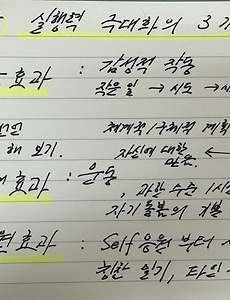 실행력 극대화의 3가
효과 : 감성적 작동
작은일 → 시도 →
해 보기. 체계적/구체적 계획
자신에 대한 ←
만족.
효과 : 운동, 과한 수준 1시
자기 돌봄의 기본
효과 : Self 응원부터
칭찬 일기, 타인